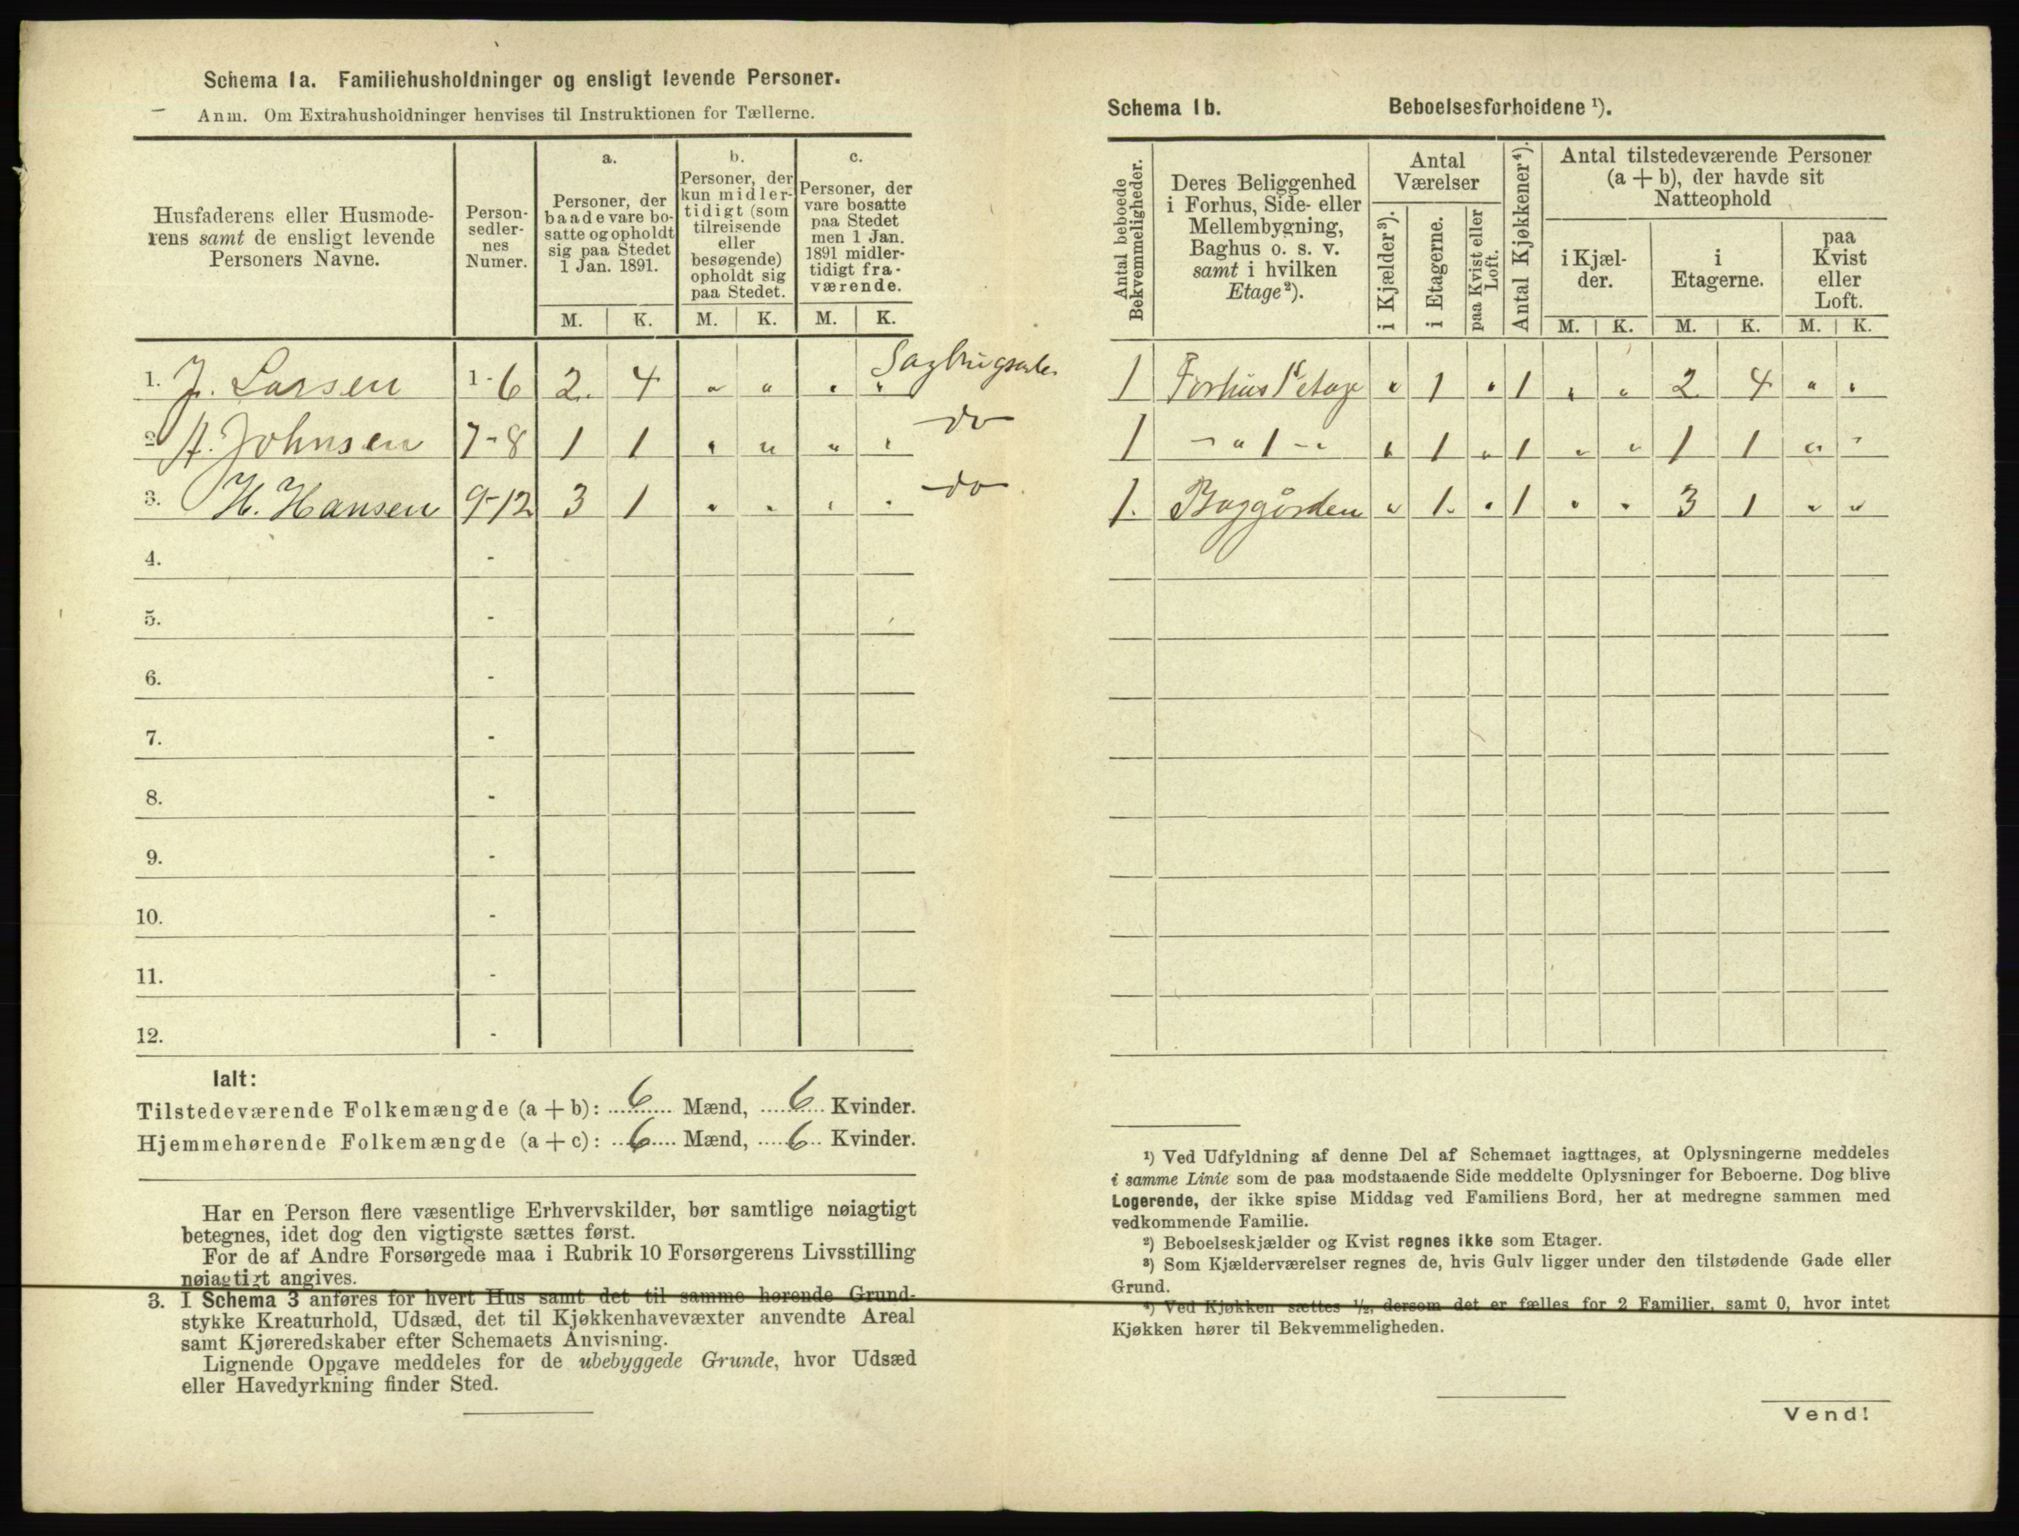 Schema 1a. Familiehusholdninger og ensligt levende Personer.
Anm. Om Extrahusholdninger henvises til Instruktionen for Tællerne.
Husfaderens eller Husmoderens samt de ensligt levende Personers Navne.
Personsedlernes Numer.
a.
Personer, der baade vare bosatte og opholdt sig paa Stedet 1 Jan. 1891.
b.
Personer, der kun midlertidigt (som tilreisende eller besøgende) opholdt sig paa Stedet.
c.
Personer, der vare bosatte paa Stedet men 1 Jan. 1891 midlertidigt fraværende.
M. K. M. K. M. K.
1. J. Larsen 1-6 2. 4 " " " "
2. A. Johnsen 7-8 1 1 " " " " do
3. H. Hansen 9-12 3 1 " " " " do
4. -
5. -
6. -
7. -
8. -
9. -
10. -
11. -
12. -
Ialt:
Tilstedeværende Folkemængde (a + b): 6 Mænd, 6 Kvinder.
Hjemmehørende Folkemængde (a + c): 6 Mænd, 6 Kvinder.
Har en Person flere væsentlige Erhvervskilder, bør samtlige nøiagtigt
betegnes, idet dog den vigtigste sættes først.
For de af Andre Forsørgede maa i Rubrik 10 Forsørgerens Livsstilling
nøiagtigt angives.
3. I Schema 3 anføres for hvert Hus samt det til samme hørende Grund-
stykke Kreaturhold, Udsæd, det til Kjøkkenhavevæxter anvendte Areal
samt Kjøreredskaber efter Schemaets Anvisning.
Lignende Opgave meddeles for de ubebyggede Grunde, hvor Udsæd
eller Havedyrkning finder Sted.
Schema 1b. Beboelsesforholdene ¹).
Antal beboede Bekvemmeligheder.
Deres Beliggenhed i Forhus, Side- eller Mellembygning, Baghus o. s. v. samt i hvilken Etage²).
Antal Værelser
i Kjælder³).
i Etagerne.
paa Kvist eller Loft.
Antal Kjøkkener⁴).
Antal tilstedeværende Personer (a + b), der havde sit Natteophold
i Kjælder.
i Etagerne.
paa Kvist eller Loft.
M. K. M. K. M. K.
1 Forhus 1st etage " 1 " 1 " " 2 4 " "
1 - " 1 - " " 1 " 1 " " 1 1 " "
1. Baggården " 1. " 1 " " 3 1 " "
¹) Ved Udfyldning af denne Del af Schemaet iagttages, at Oplysningerne meddeles
i samme Linie som de paa modstaaende Side meddelte Oplysninger for Beboerne. Dog blive
Logerende, der ikke spise Middag ved Familiens Bord, her at medregne sammen med
vedkommende Familie.
²) Beboelseskjælder og Kvist regnes ikke som Etager.
³) Som Kjælderværelser regnes de, hvis Gulv ligger under den tilstødende Gade eller
Grund.
⁴) Ved Kjøkken sættes ½, dersom det er fælles for 2 Familier, samt 0, hvor intet
Kjøkken hører til Bekvemmeligheden.
Vend!